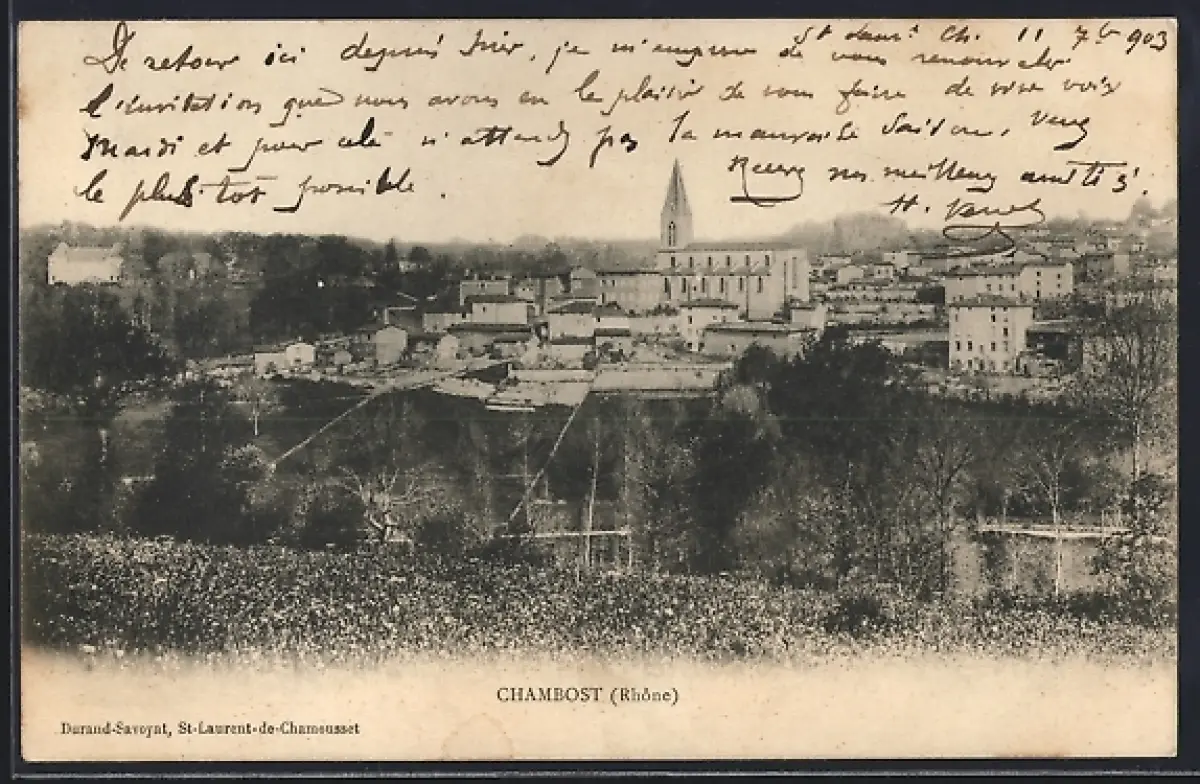 St Laurt Ch. 11 7bre 903
De retour ici depuis hier, je m'empresse de vous renouveler
l'invitation que nous avons eu le plaisir de vous faire de vive voix
Mardi et pour cela n'attendez pas la mauvaise saison, Venez
le plus tôt possible.
Recevez nos meilleures amitiés.
H.
CHAMBOST (Rhône)
Durand-Savoyat, St-Laurent-de-Chamousset